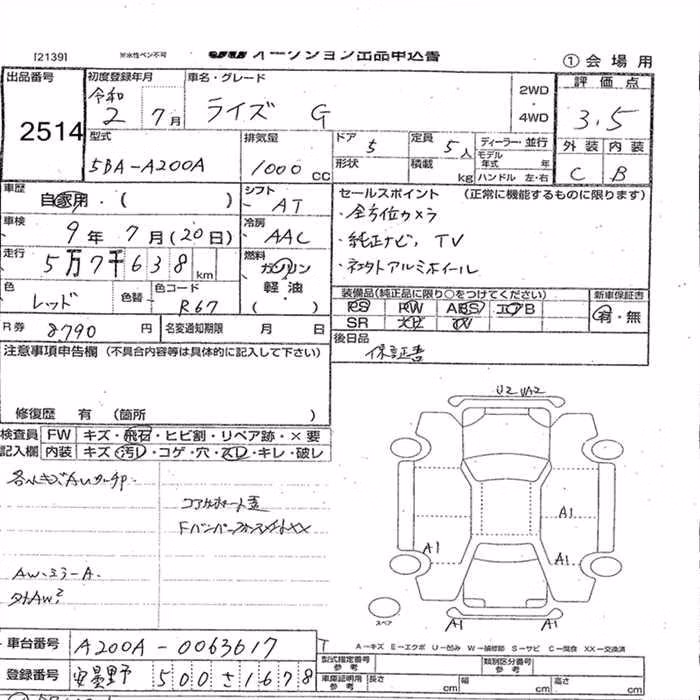 [2139] ※水性ペン不可 オークション出品申込書 ① 会場用
出品番号 2514
初度登録年月 令和 2年 7月
車名・グレード ライズ G
2WD・4WD
評価点 3.5
外装 C 内装 B
型式 5BA-A200A
排気量 1000 CC
ドア 5 形状
定員 5人 積載 kg
ディーラー・並行
モデル年式 年
ハンドル 左・右
車歴 自家用・( )
シフト AT
車検 9年 7月(20日)
冷房 AAC
走行 5万7千638 km
燃料 ガソリン 軽油 ( )
色 レッド 色替 色コード R67
R券 8790 円 名変通知期限 月 日
セールスポイント (正常に機能するものに限ります)
・全方位カメラ
・純正ナビ, TV
・社外アルミホイール
装備品(純正品に限り○をつけてください) 新車保証書
PS PW ABS エアB 有・無
SR
後日品 保証書
注意事項申告欄(不具合内容等は具体的に記入して下さい)
修復歴 有 (箇所 )
検査員 FW キズ・飛石・ヒビ割・リペア跡・×要
記入欄 内装 キズ・汚れ・コゲ・穴・スレ・キレ・破レ
コアサポート
Fバンパー
AW・ミラーA.
外AW
U2
A1
A1
A1
A1
A1
A1
スペア
A=キズ E=エクボ U=凹み W=補修跡 S=サビ C=腐食 XX=交換済
車台番号 A200A-0063617
登録番号 安曇野 500 さ 1678
型式指定番号 参考 類別区分番号 参考
車庫証明用 参考 長さ cm 幅 cm 高さ cm